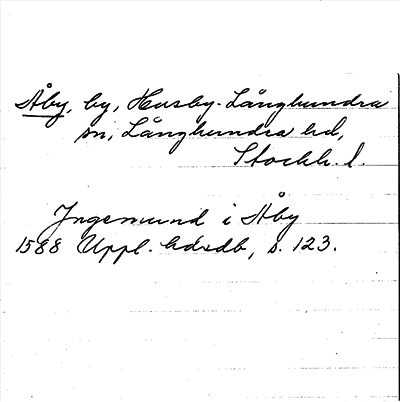 Åby, by, Husby-Långhundra
sn, Långhundra hd,
Stockh. l.
Ingemund i Åby
1588 Uppl. hdrdb, s. 123.